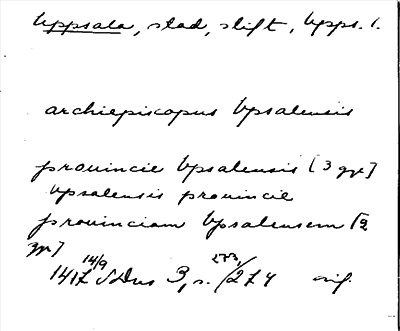 Uppsala, stad, stift, Upps. l.
archiepiscopus Vpsalensis
prouincie Vpsalensis [3 ggr]
vpsalensis prouincie
prouinciam Vpsalensem [2
ggr]
1417 14/9 SDns 3, s. 273/274 orig.